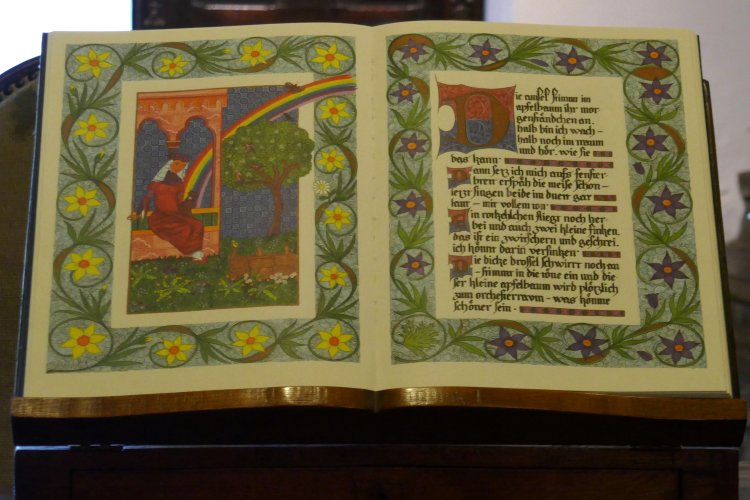 Die amsel stimmt im
apfelbaum ihr mor
genständchen an.
halb bin ich wach –
halb noch im traum
und hör, wie sie
das kann
Dann setz ich mich aufs fenster
brett erspäh die meise schon –
jetzt singen beide im duett gar
laut – mit vollem ton
Ein rotkehlchen fliegt noch her
bei und auch zwei kleine finken.
das ist ein zwitschern und geschrei.
ich könnt darin versinken
Die dicke drossel schwirrt noch an
– stimmt in die töne ein und die
ser kleine apfelbaum wird plötzlich
zum orchesterraum – was könnte
schöner sein –